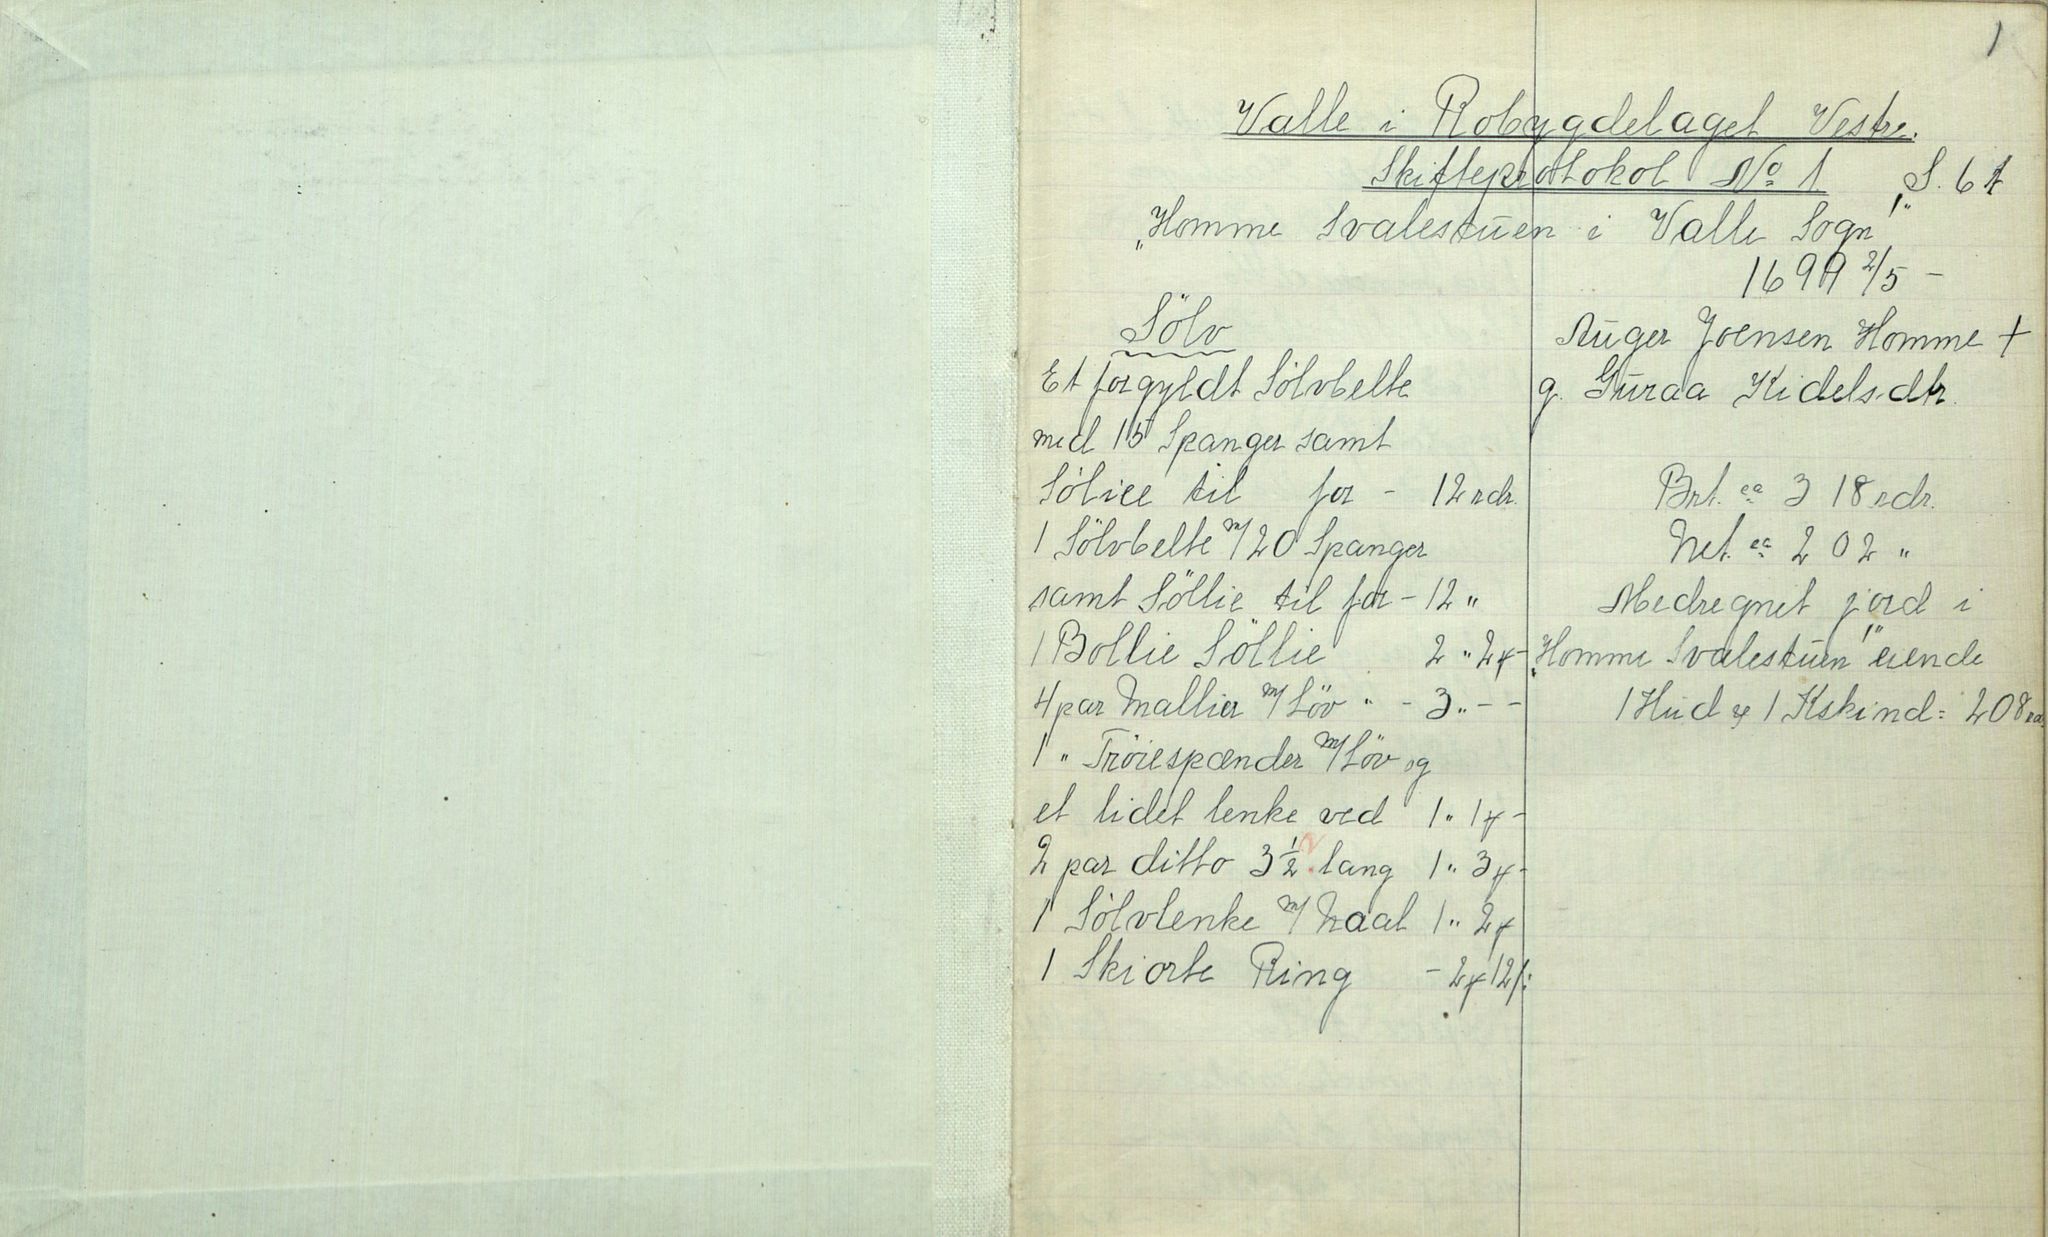 1
Valle i Robygdelaget Vestre.
Skifteprotokol No 1 S. 6 t
"Homme Svalestuen i Valle Sogn",
1699 2/5 -
Sölv
Et forgyldt Sölvbelte
med 15 Spanger samt
Söliee til for - 12 rdr.
1 Sölvbelte m/ 20 Spanger
samt Söllie til for - 12 "
1 Bollie Söllie 2 " 2 ɣ -
4 par Mallier m/ Löv " - 3 " - -
1 " Tröiespænder m/ Löv og
et lidet lenke ved 1 " 1 ɣ -
2 par ditto 3 1/2 lang 1 " 3 ɣ -
1 Sölvlenke m/ Naal 1 " 2 ɣ
1 Skiorte Ring - 2 ɣ 12 /:
Auger Joensen Homme +
g. Guraa Kidelsdtr.
Brt. ca 318 rdr.
Net. ca 202 "
Medregnet jord i
"Homme Svalestuen" eiende
1 Hud & 1 Kskind = 208 rdr.